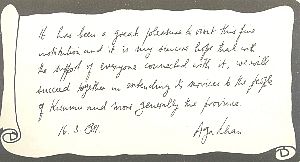 It has been a great pleasure to visit this fine
institution and it is my sincere hope that with
the support of everyone connected with it, we will
succeed together in extending its services to the people
of Kisumu and more generally the province.
16. 3. 1981. Aga Khan